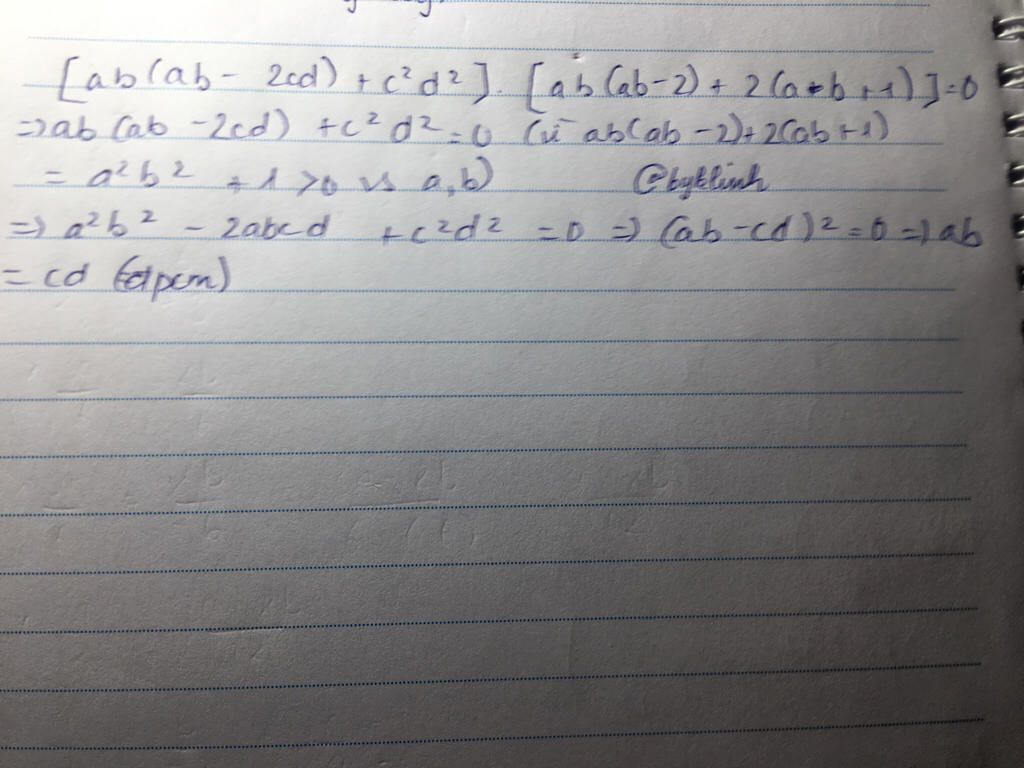 [ab(ab - 2cd) + c²d²]. [ab(ab-2) + 2(ab+1)]=0
=> ab(ab - 2cd) + c²d² = 0 (vì ab(ab-2)+2(ab+1)
= a²b² + 1 > 0 vs a,b)
@byklinh
=> a²b² - 2abcd + c²d² = 0 => (ab-cd)² = 0 => ab
= cd (đpcm)